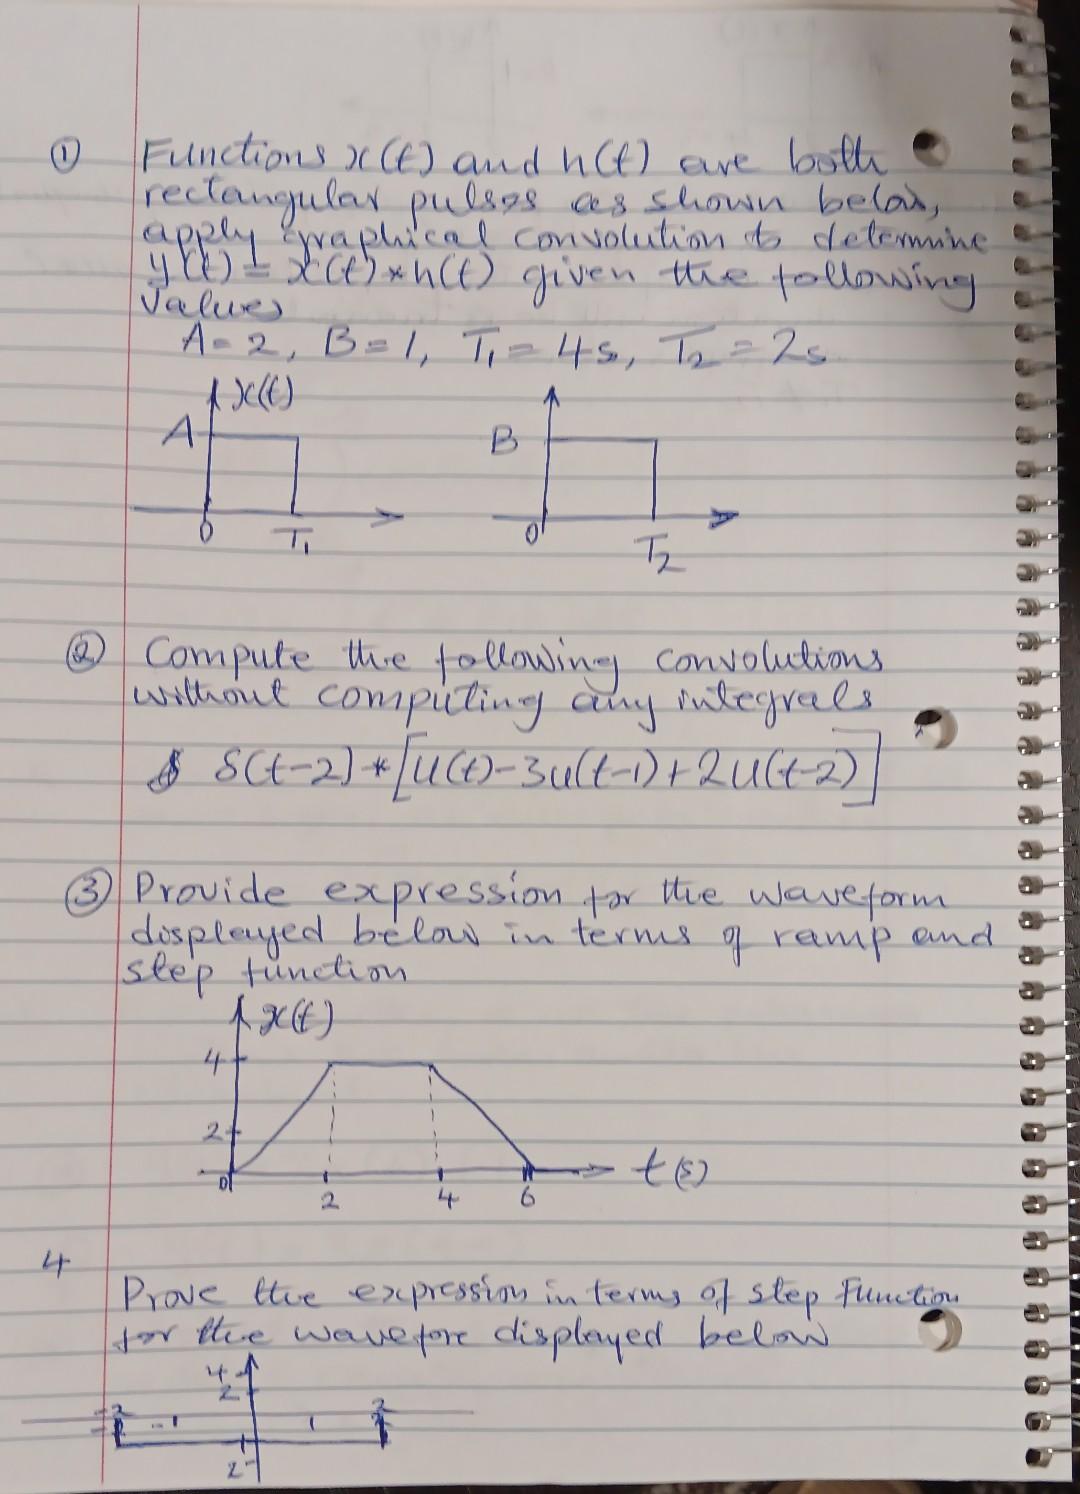 ① Functions x(t) and h(t) are both
rectangular pulses as shown below,
apply graphical convolution to determine
y(t) = x(t) * h(t) given the following
values
A = 2, B = 1, T₁ = 4s, T₂ = 2s
x(t)
A B
0 T₁ 0 T₂
② Compute the following convolutions
without computing any integrals
δ(t-2) * [u(t)-3u(t-1)+2u(t-2)]
③ Provide expression for the waveform
displayed below in terms of ramp and
step function
x(t)
4
2
0 2 4 6 t(s)
4
Prove the expression in terms of step Function
for the wavefore displayed below
4
2
-2 -1 1 2
2-